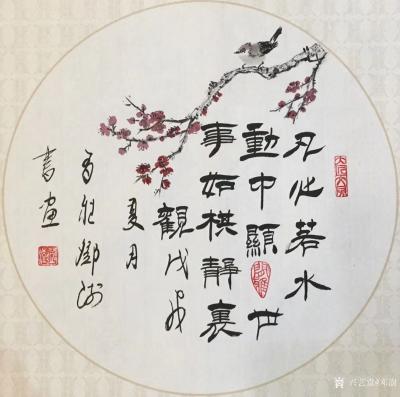 凡心若水
動中顯世
事如棋靜裏
觀戊戌
夏月
書畫